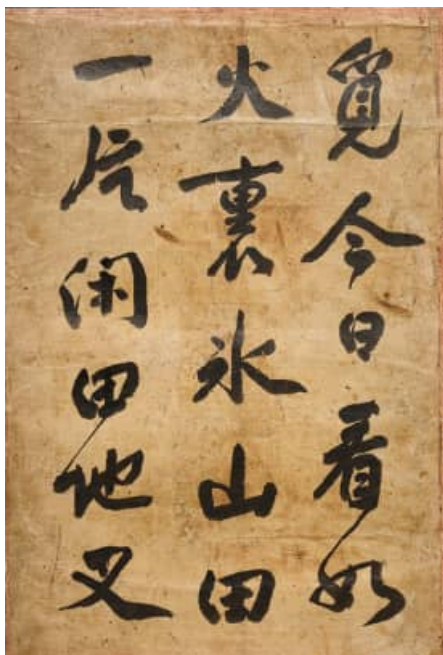 覓今日看如
火裏氷山田
一片閑田地叉